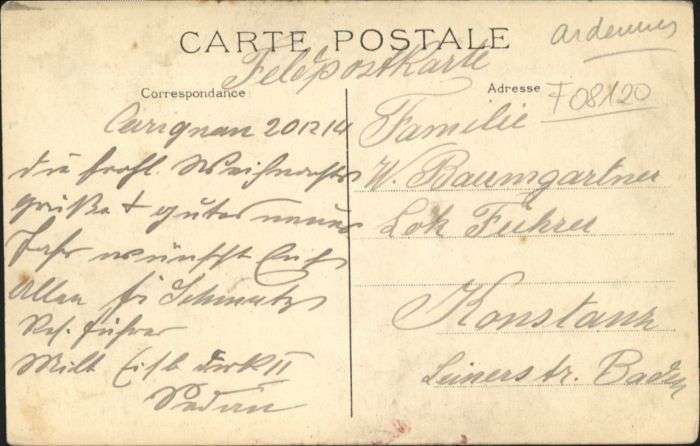 CARTE POSTALE
ardennes
Feldpostkarte
Correspondance
Adresse
F 08120
Carignan 20 12 14
die frohl. Weihnachts
grüße + gutes neues
Jahr wünscht Euch
Allen
Res. führer
Milt Eisb II
Sedan
Familie
W. Baumgartner
Lok Führer
Konstanz
Leinerstr. Baden